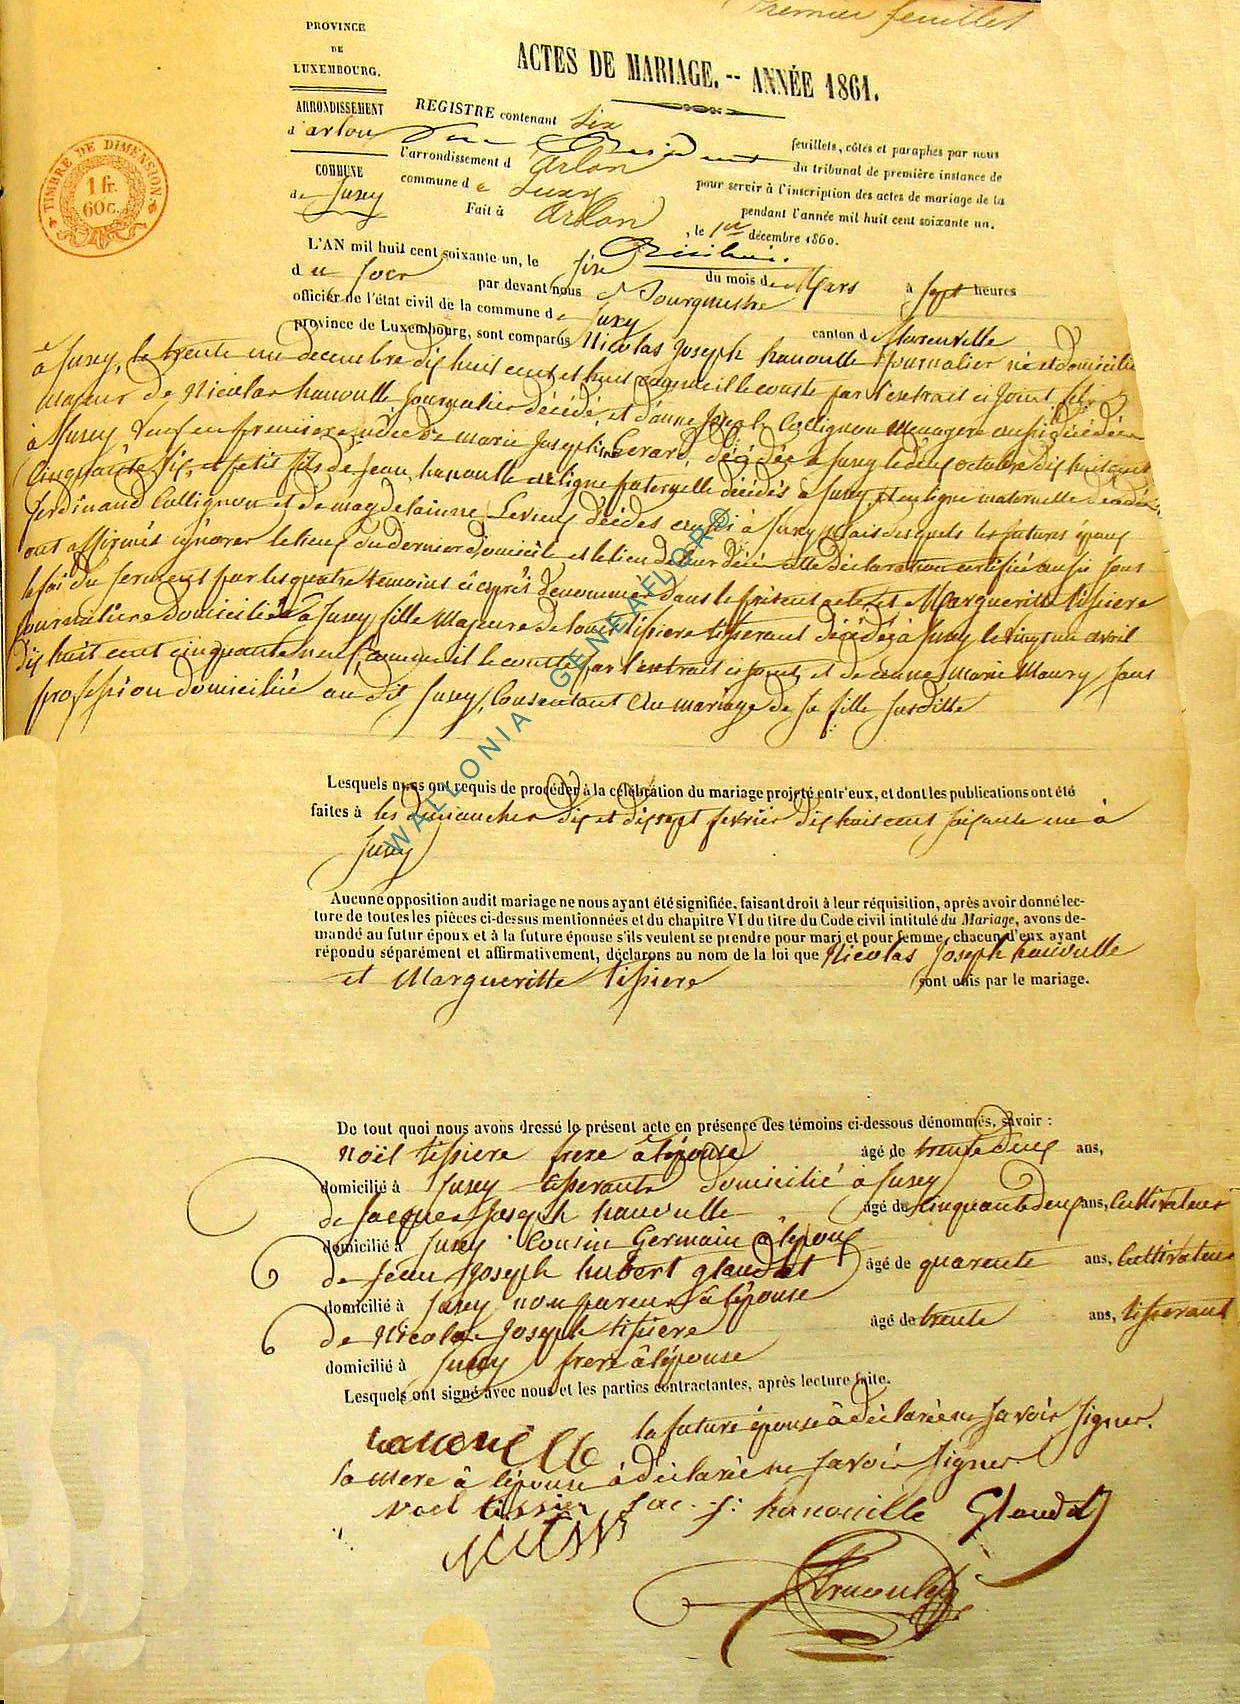 Premier feuillet
PROVINCE
DE
LUXEMBOURG.
ACTES DE MARIAGE. -- ANNÉE 1861.
ARRONDISSEMENT
d'arlon
COMMUNE
de Juzey
TIMBRE DE DIMENSION
1 fr.
60 c.
REGISTRE contenant six
feuillets, côtés et paraphés par nous
du tribunal de première instance de
l'arrondissement d'Arlon
pour servir à l'inscription des actes de mariage de la
commune de Juzey
pendant l'année mil huit cent soixante un.
Fait à Arlon, le 1er décembre 1860.
L'AN mil huit cent soixante-un, le six du mois de Mars à sept heures
du soir par devant nous Bourgmestre
officier de l'état civil de la commune de Juzey canton de Florenville
province de Luxembourg, sont comparus Nicolas Joseph hanoulle Journalier né et domicilié
à Juzey, le trente un decembre dix huit cent et huit comme il le conste par l'extrait ci joint fils
Majeur de Nicolas hanoulle Journalier décédé et d'anne Collignon Menagere aussi décédée
à Jusey, Veuf en premiere de marie Josephine Gerard, décédée à Jusey le deux octobre dix huit cent
Cinquante six, et petit fils de Jean hanoulle en ligne paternelle décédés à Jusey, et en ligne maternelle de
ferdinand Collignon et de magdelainne décédés aussi à Jusey, Mais desquels les futures époux
ont affirmés ignorer le lieu du dernier domicile et le lieu de leur décé cette déclaration certifiée aussi sous
la foi du serment par les quatre temoins ci après denommés dans le présent acte, et Margueritte tissiere
Journaliere domiciliée à Jusey, fille Majeure de louis tissiere tisserant décédé à Jusey le vingt un avril
dix huit cent cinquante neuf, comme il le conste par l'extrait ci joint, et de anne Marie Maury sans
profession domiciliée au dit Jusey, Consentant au mariage de sa fille susditte
Lesquels nous ont requis de procéder à la célébration du mariage projeté entr'eux, et dont les publications ont été
faites à les dimanches dix et dix sept fevrier dix huit cent soixante une à
Jusey
Aucune opposition audit mariage ne nous ayant été signifiée, faisant droit à leur réquisition, après avoir donné lec-
ture de toutes les pièces ci-dessus mentionnées et du chapitre VI du titre du Code civil intitulé du Mariage, avons de-
mandé au futur époux et à la future épouse s'ils veulent se prendre pour mari et pour femme, chacun d'eux ayant
répondu séparément et affirmativement, déclarons au nom de la loi que Nicolas Joseph hanoulle
et Margueritte tissiere sont unis par le mariage.
De tout quoi nous avons dressé le présent acte en présence des témoins ci-dessous dénommés, savoir :
Noël tissiere frere à l'épouse âgé de trente deux ans,
domicilié à Jusey tisserant domicilié à Jusey
de Jacques Joseph hanoulle âgé de cinquante deux ans, Cultivateur
domicilié à Jusey Cousin Germain à l'époux
de Jean Joseph hubert glaudot âgé de quarente ans, Cultivateur
domicilié à Jusey non pareur à l'épouse
de Nicolas Joseph tissiere âgé de trente ans, tisserant
domicilié à Jusey frere à l'épouse
Lesquels ont signé avec nous et les parties contractantes, après lecture faite.
la future épouse à déclarée ne savoir signer.
la mere à l'épouse à déclarée ne savoir signer
noel tissier Jac. J. hanouille Glaudot
WALLONIA GENEAFLOR ©